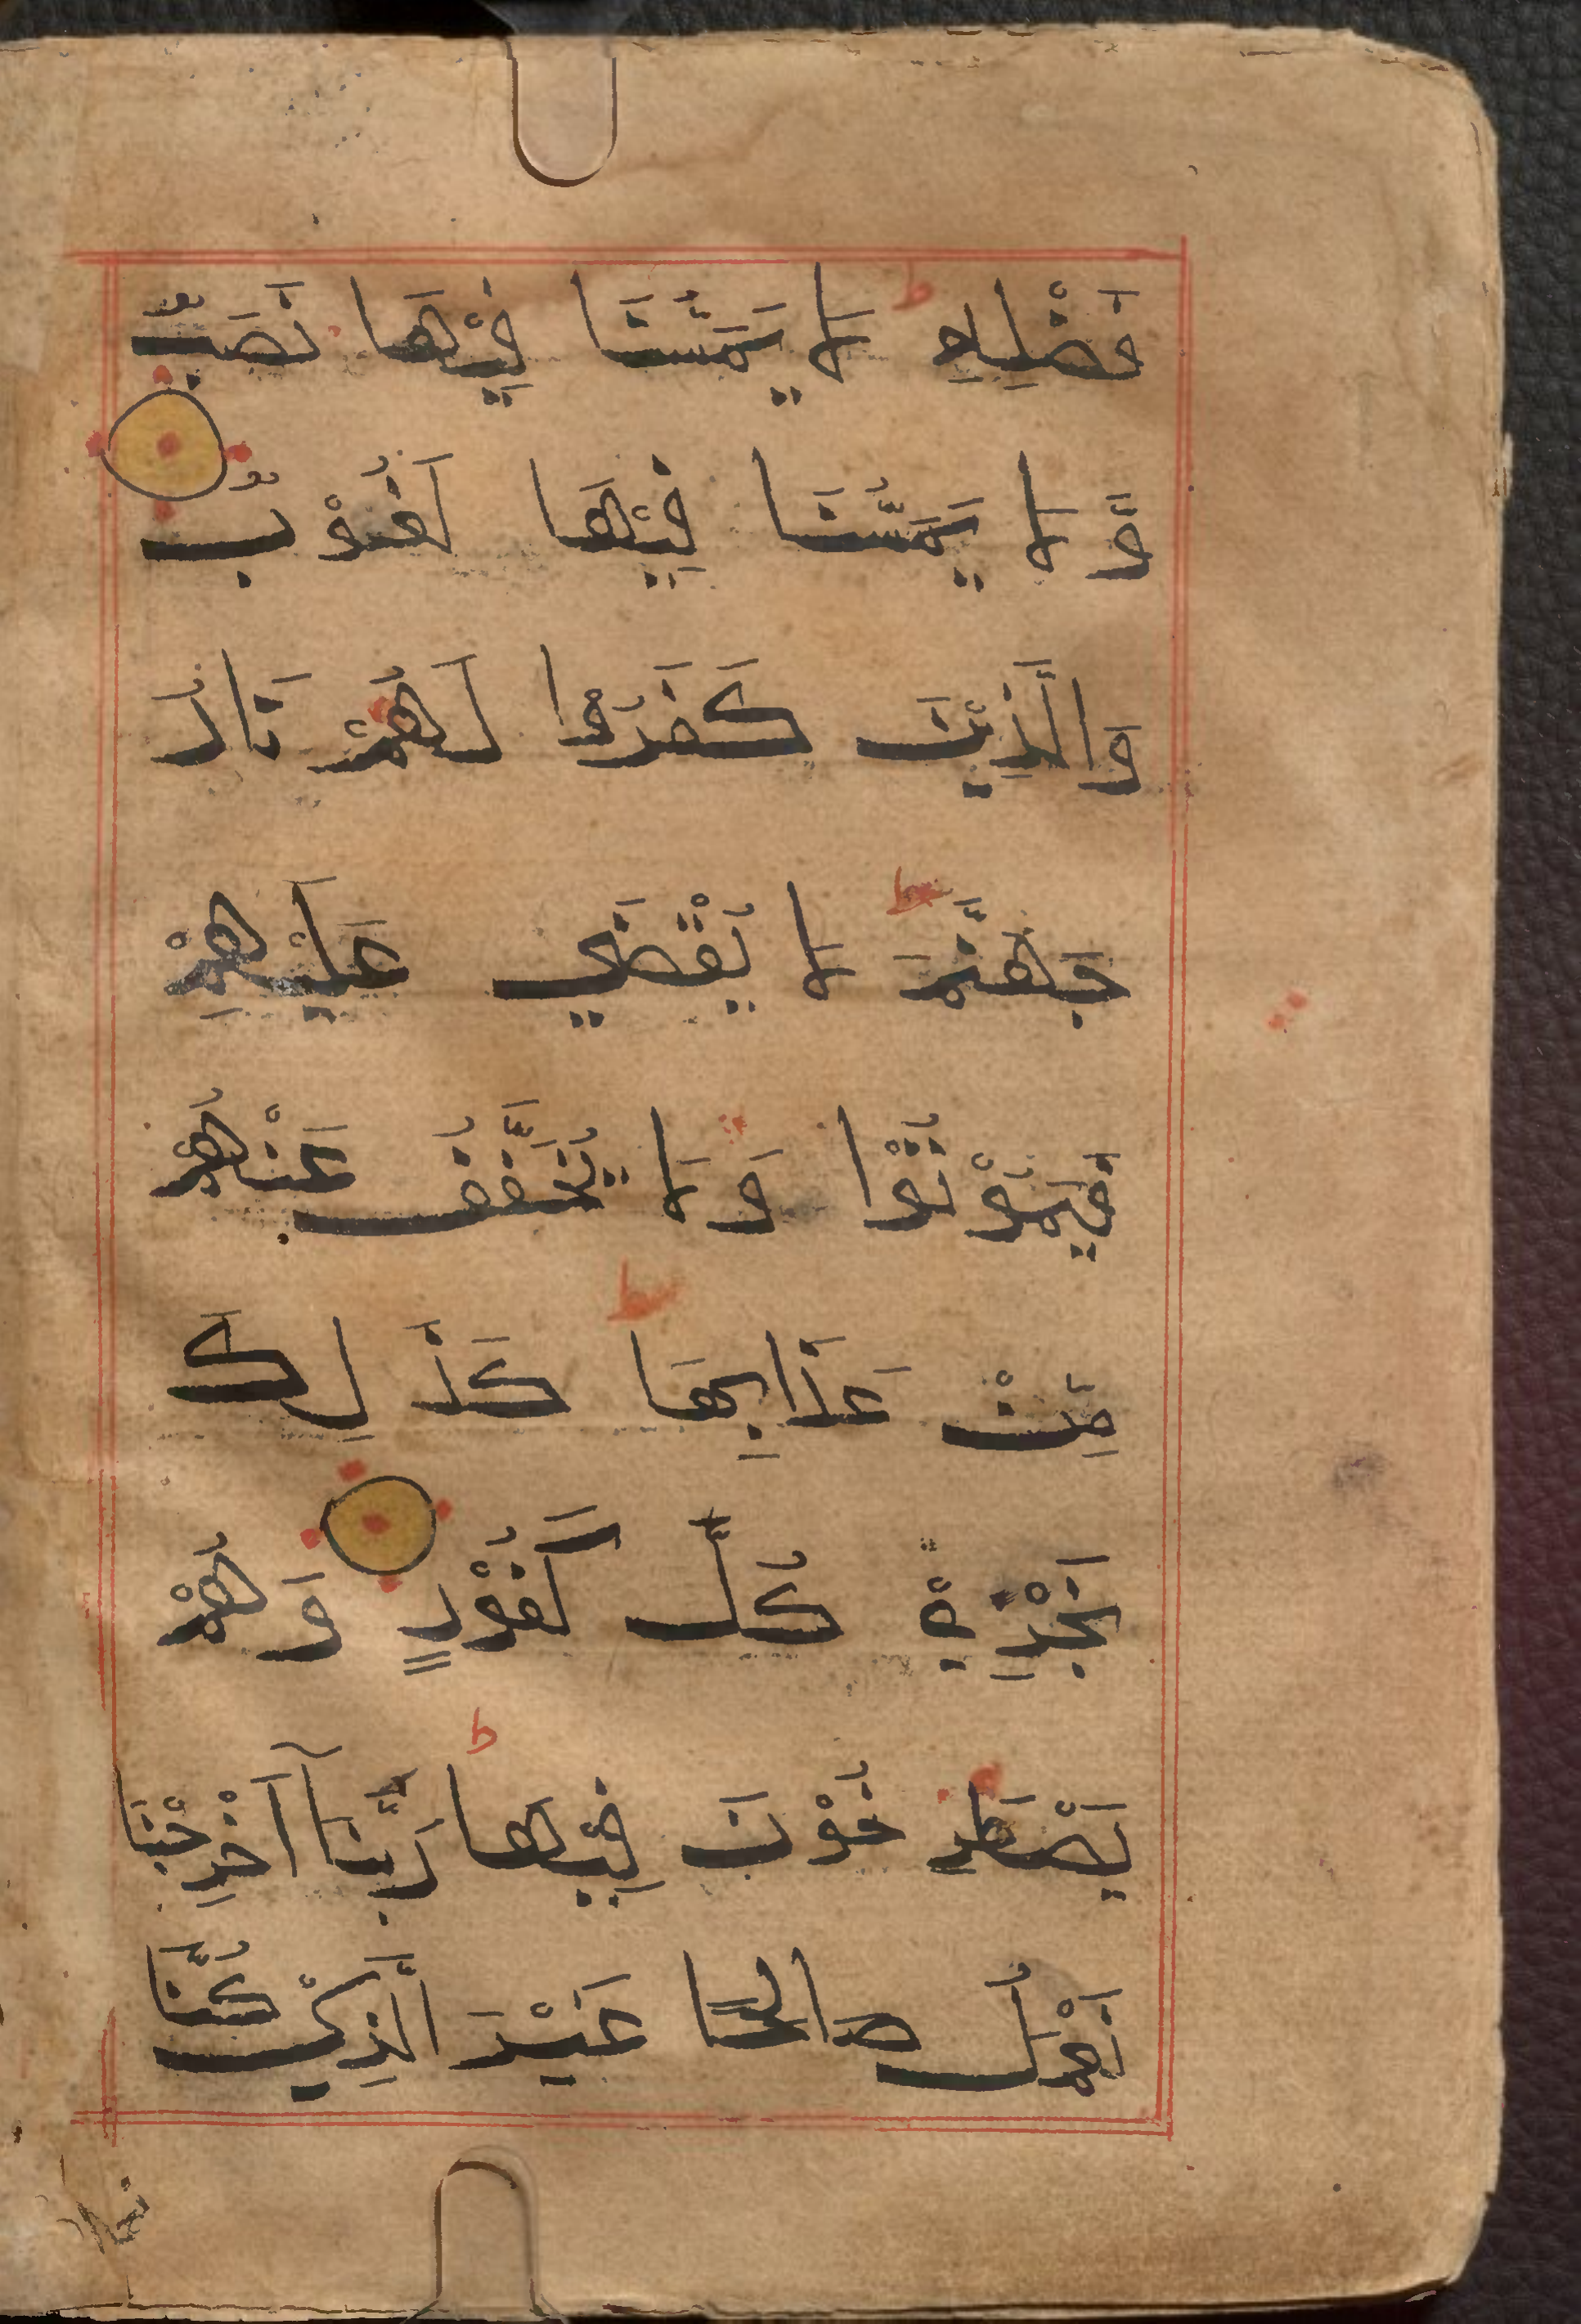 فَضْلِهِ لَا يَمَسُّنَا فِيْهَا نَصَبٌ
وَّلَا يَمَسُّنَا فِيْهَا لُغُوْبٌ
وَالَّذِيْنَ كَفَرُوا لَهُمْ نَارُ
جَهَنَّمَ لَا يُقْضَي عَلَيْهِمْ
فَيَمُوْتُوْا وَلَا يُخَفَّفُ عَنْهُمْ
مِنْ عَذَابِهَا كَذَلِكَ
نَجْزِيْ كُلَّ كَفُوْرٍ وَهُمْ
يَصْطَرِخُوْنَ فِيْهَا رَبَّنَآ اَخْرِجْنَا
نَعْمَلْ صَالِحًا غَيْرَ الَّذِيْ كُنَّا